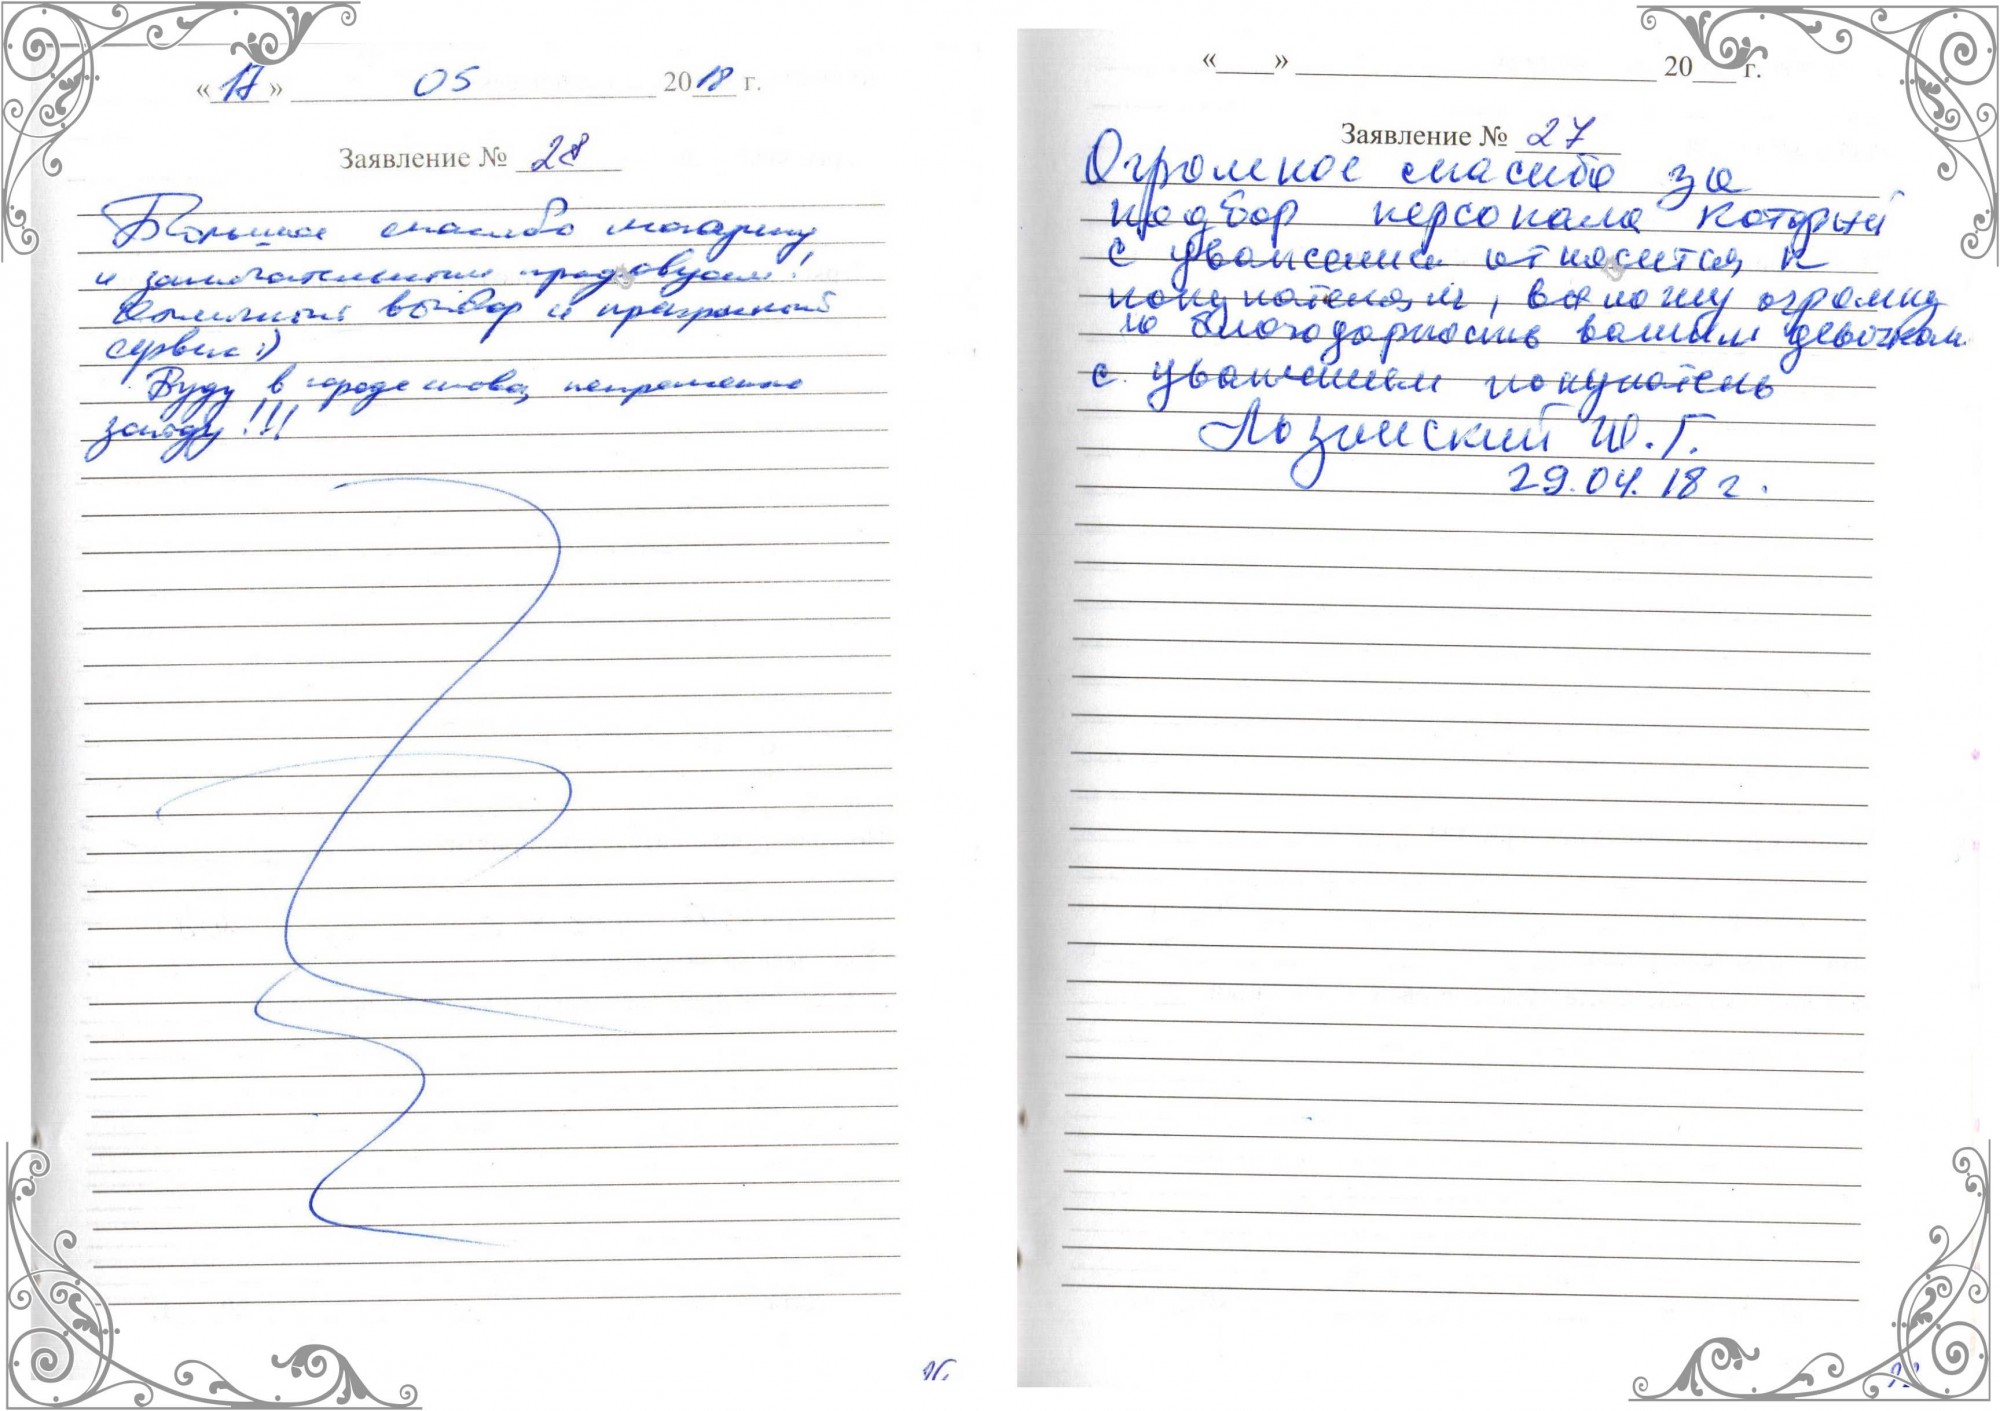 «17» 05 2018 г.
Заявление № 28
Большое спасибо магазину
и замечательным продавцам!
Отличный выбор и прекрасный
сервис:)
Буду в городе снова, непременно
зайду!!!
«____» ____________ 20___ г.
Заявление № 27
Огромное спасибо за
подбор персонала который
с уважением относится к
покупателям, выложу огромну
ю благодарность вашим девочкам
с уважением покупатель
Лозинский Ю.Г.
29.04.18 г.